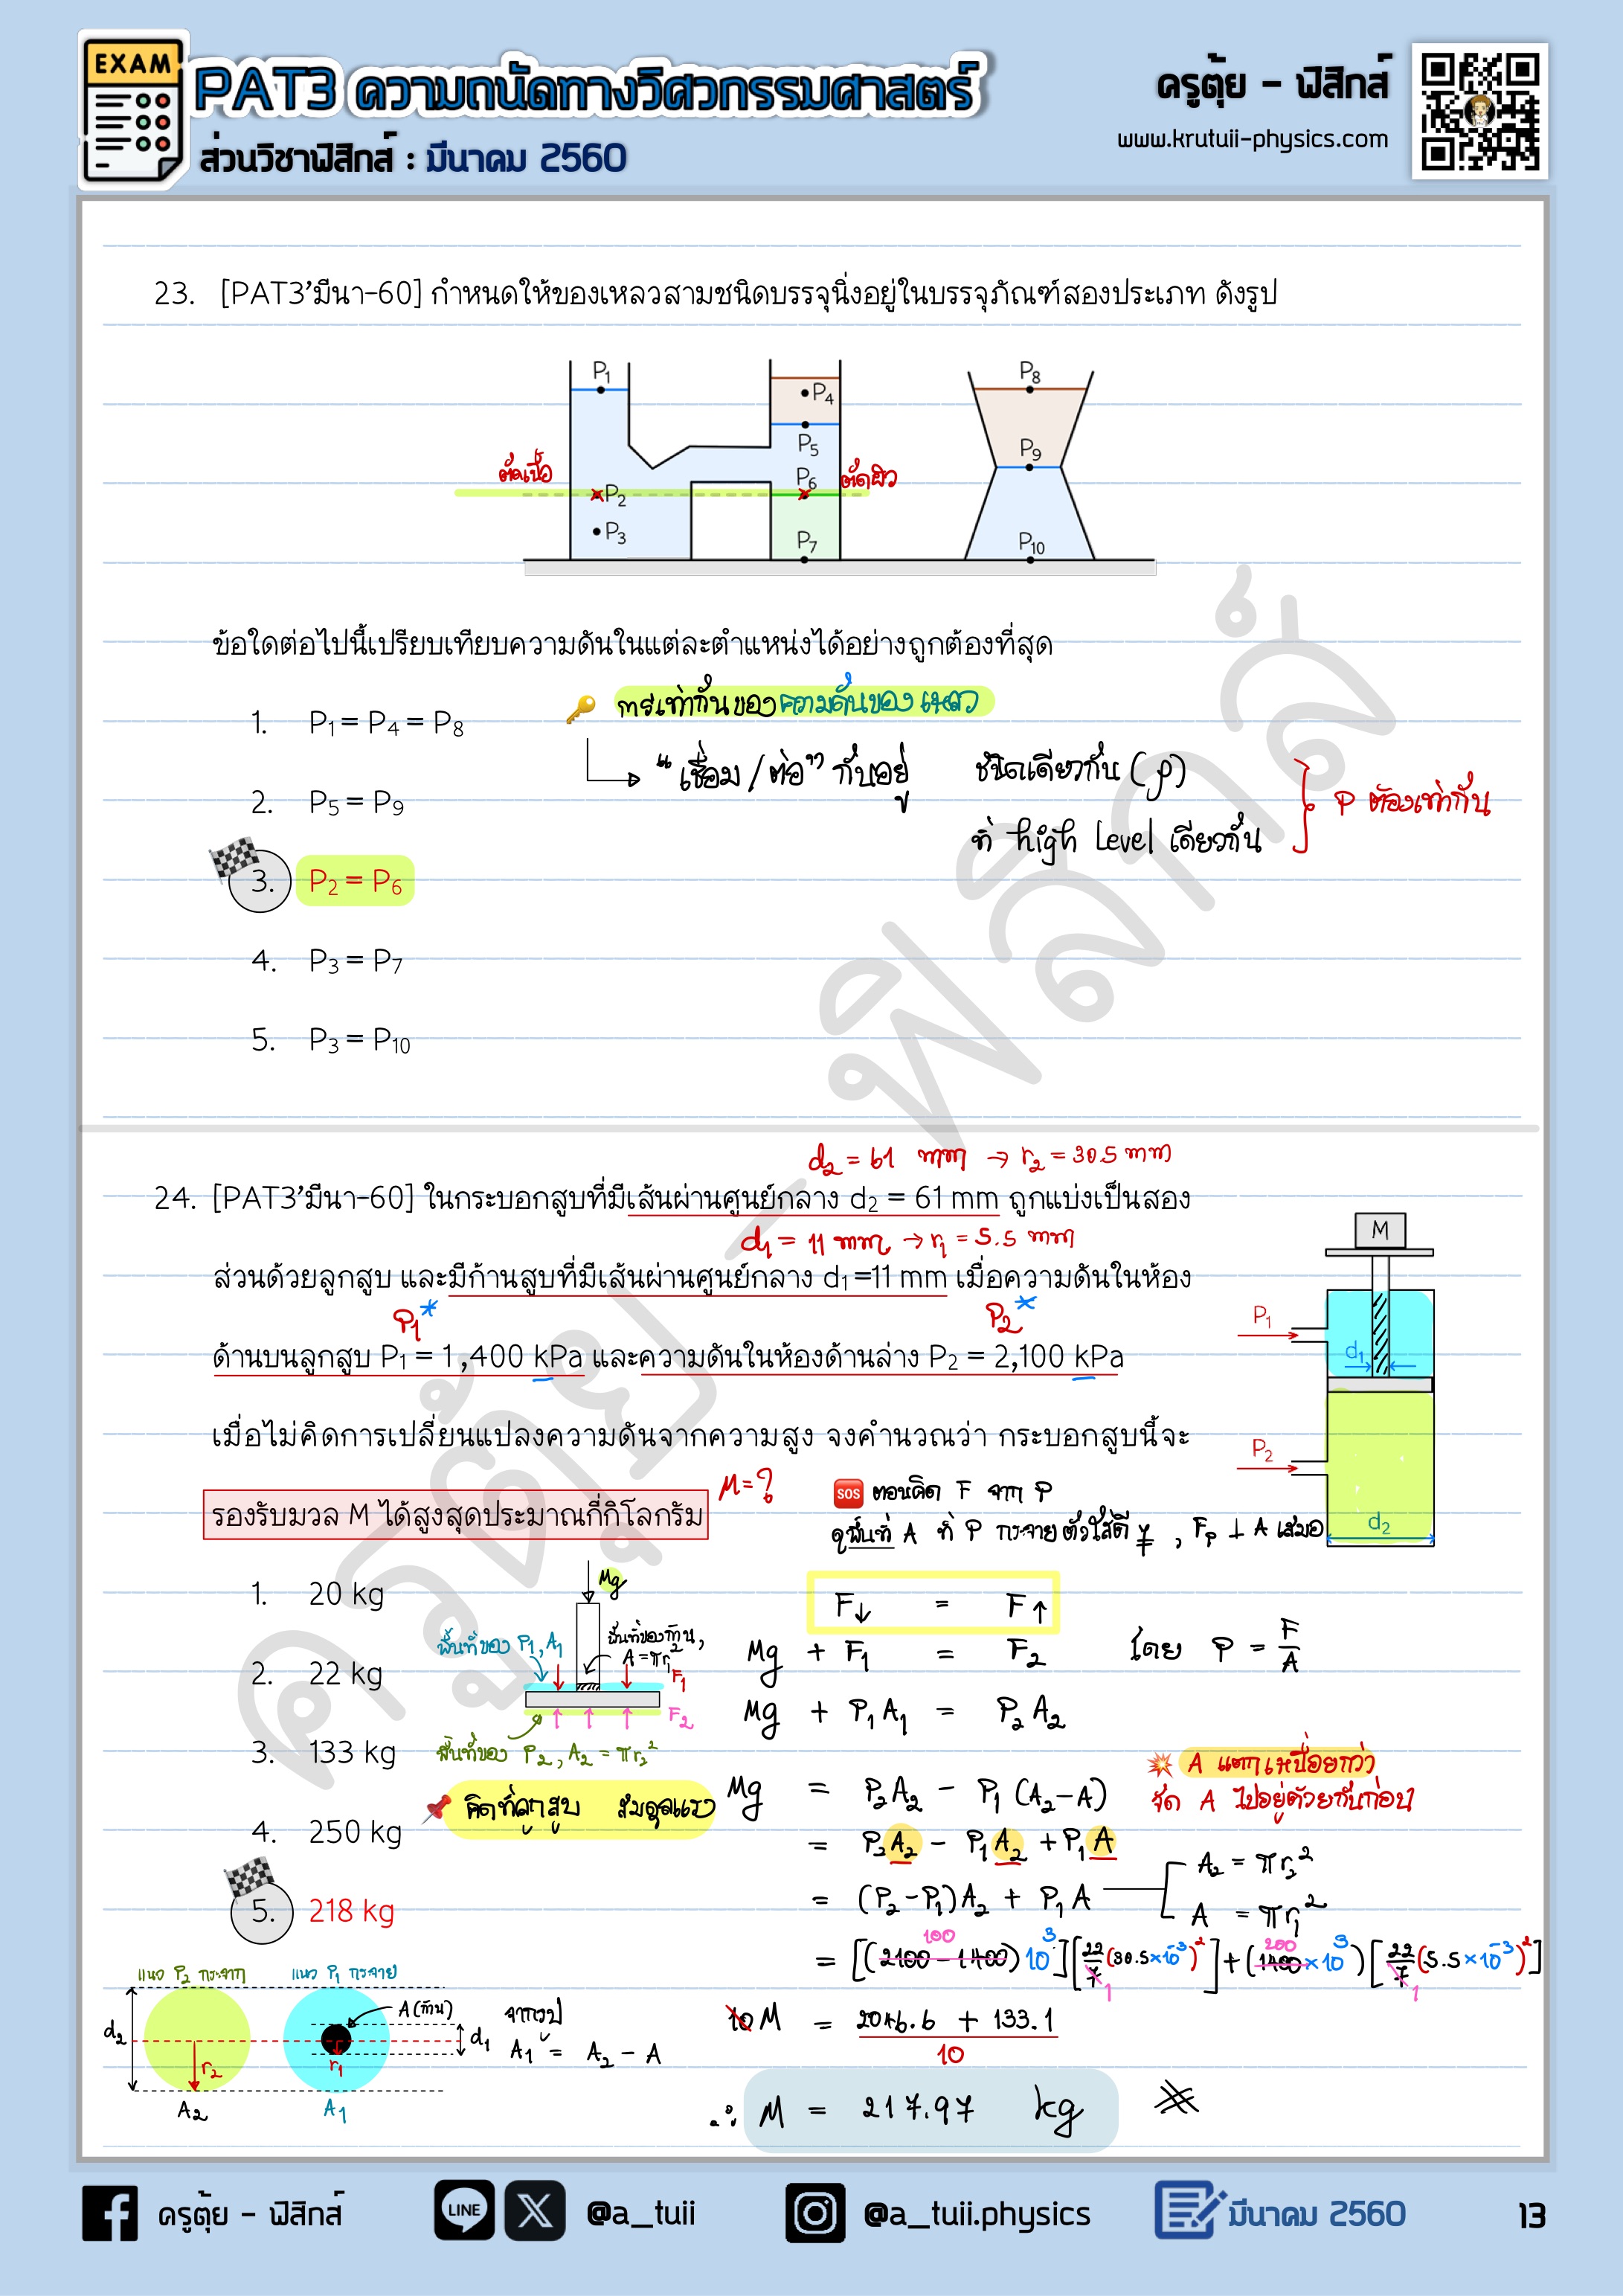 EXAM
PAT3 ความถนัดทางวิศวกรรมศาสตร์
ส่วนวิชาฟิสิกส์ : มีนาคม 2560
ครูตุ้ย - ฟิสิกส์
www.krutuii-physics.com
23. [PAT3'มีนา-60] กำหนดให้ของเหลวสามชนิดบรรจุนิ่งอยู่ในบรรจุภัณฑ์สองประเภท ดังรูป
P1
P4
P8
P5
P9
ตัดเนื้อ
P2
P6
ตัดผิว
P3
P7
P10
ข้อใดต่อไปนี้เปรียบเทียบความดันในแต่ละตำแหน่งได้อย่างถูกต้องที่สุด
1. P1 = P4 = P8
2. P5 = P9
3. P2 = P6
4. P3 = P7
5. P3 = P10
การเท่ากันของความดันของเหลว
"เชื่อม / ต่อ" กันอยู่
ชนิดเดียวกัน (ρ)
ที่ high level เดียวกัน
P ต้องเท่ากัน
d2 = 61 mm → r2 = 30.5 mm
24. [PAT3'มีนา-60] ในกระบอกสูบที่มีเส้นผ่านศูนย์กลาง d2 = 61 mm ถูกแบ่งเป็นสอง
d1 = 11 mm → r1 = 5.5 mm
ส่วนด้วยลูกสูบ และมีก้านสูบที่มีเส้นผ่านศูนย์กลาง d1 =11 mm เมื่อความดันในห้อง
P1* P2*
ด้านบนลูกสูบ P1 = 1,400 kPa และความดันในห้องด้านล่าง P2 = 2,100 kPa
เมื่อไม่คิดการเปลี่ยนแปลงความดันจากความสูง จงคำนวณว่า กระบอกสูบนี้จะ
รองรับมวล M ได้สูงสุดประมาณกี่กิโลกรัม
M = ?
M
P1
d1
P2
d2
SOS ตอนคิด F จาก P
ดูพื้นที่ A ที่ P กระจายตัวใส่ดีๆ , Fp ⊥ A เสมอ
1. 20 kg
2. 22 kg
3. 133 kg
4. 250 kg
5. 218 kg
Mg
พื้นที่ของ P1, A1
พื้นที่ของก้าน,
A = πr1²
F1
F2
พื้นที่ของ P2, A2 = πr2²
คิดที่ลูกสูบ สมดุลแรง
F↓ = F↑
Mg + F1 = F2
โดย P = F/A
Mg + P1A1 = P2A2
Mg = P2A2 - P1(A2-A)
A แตกเหนื่อยกว่า
จัด A ไปอยู่ด้วยกันก่อน
= P2A2 - P1A2 + P1A
= (P2-P1)A2 + P1A
A2 = πr2²
A = πr1²
100 200
= [(2100-1400)10³][22/7(30.5×10⁻³)²]+(1400×10³)[22/7(5.5×10⁻³)²]
1 1
10M = 2046.6 + 133.1
10
∴ M = 217.97 kg
แนว P2 กระจาย
แนว P1 กระจาย
A (ก้าน)
d2
r2
r1
d1
A2
A1
จากรูป
A1 = A2 - A
ครูตุ้ย - ฟิสิกส์
ครูตุ้ย - ฟิสิกส์
LINE
@a_tuii
@a_tuii.physics
มีนาคม 2560
13